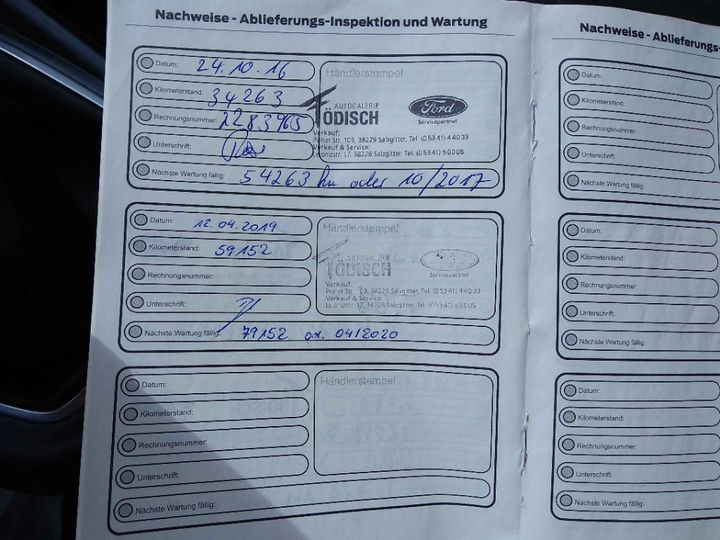 Nachweise - Ablieferungs-Inspektion und Wartung
Datum: 24.10.16
Kilometerstand: 34263
Rechnungsnummer:
Unterschrift:
Nächste Wartung fällig: 54263 km oder 10/2017
Händlerstempel
AUTOGALERIE
TÖDISCH
Ford
Servicepartner
Verkauf:
Peiner Str. 109, 38229 Salzgitter, Tel. (05341) 44033
Verkauf & Service:
Leibnizstr. 17, 38228 Salzgitter, Tel. (05341) 50005
Datum: 12.04.2019
Kilometerstand: 59152
Rechnungsnummer:
Unterschrift:
Nächste Wartung fällig: 79152 od. 04/2020
Händlerstempel
AUTOGALERIE
TÖDISCH
Servicepartner
Verkauf:
Peiner Str. 109, 38229 Salzgitter, Tel. (05341) 44033
Verkauf & Service:
Leibnizstr. 17, 38228 Salzgitter, Tel. (05341) 50005
Datum:
Kilometerstand:
Rechnungsnummer:
Unterschrift:
Nächste Wartung fällig:
Händlerstempel
Nachweise - Ablieferungs-
Datum:
Kilometerstand:
Rechnungsnummer:
Unterschrift:
Nächste Wartung fällig:
Datum:
Kilometerstand:
Rechnungsnummer:
Unterschrift:
Nächste Wartung fällig:
Datum:
Kilometerstand:
Rechnungsnummer:
Unterschrift:
Nächste Wartung fällig: